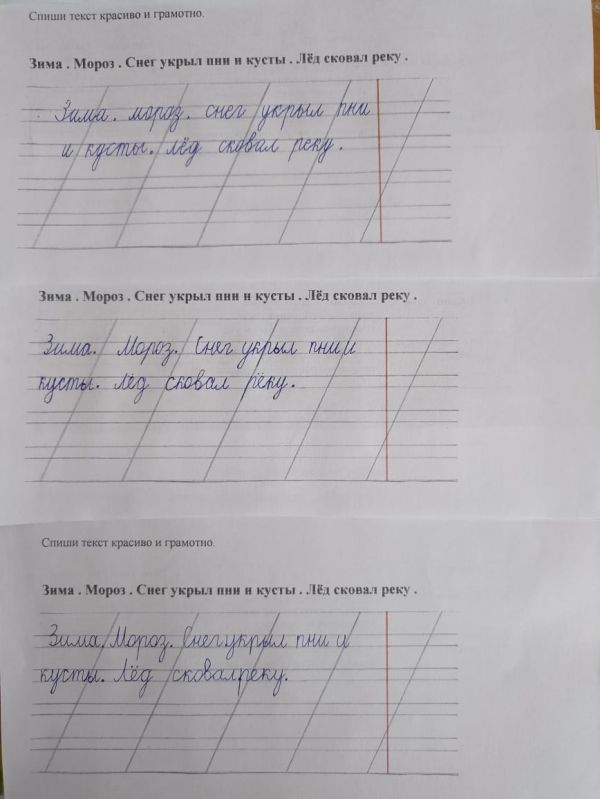 Спиши текст красиво и грамотно.
Зима . Мороз . Снег укрыл пни и кусты . Лёд сковал реку .
Зима. мороз. снег укрыл пни
и кусты. лёд сковал реку.
Зима . Мороз . Снег укрыл пни и кусты . Лёд сковал реку .
Зима. Мороз. Снег укрыл пнии
кусты. Лёд сковал рёку.
Спиши текст красиво и грамотно.
Зима . Мороз . Снег укрыл пни и кусты . Лёд сковал реку .
Зима. Мороз. Снегукрыл пни и
кусты. Лёд сковалреку.